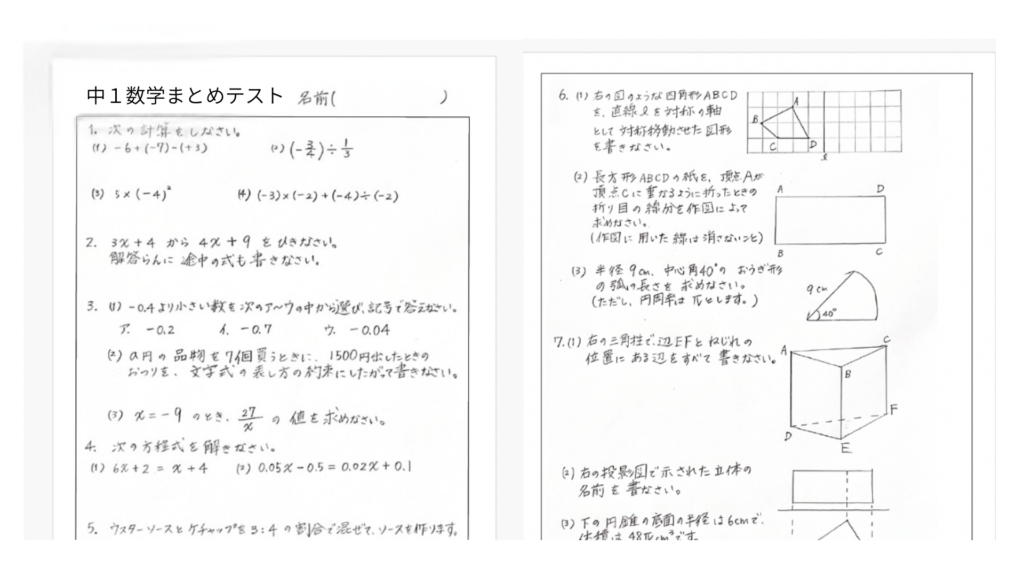 中１数学まとめテスト 名前(          )
1. 次の計算をしなさい。
(1) -6+(-7)-(+3)   (2) (-3/4)÷1/3
(3) 5×(-4)²   (4) (-3)×(-2)+(-4)÷(-2)
2. 3x+4 から 4x+9 をひきなさい。
解答らんに 途中の式も書きなさい。
3. (1) -0.4より小さい数を次のア〜ウの中から選び、記号で答えなさい。
ア. -0.2   イ. -0.7   ウ. -0.04
(2) a円の品物を7個買うときに、1500円出したときの
おつりを、文字式の表し方の約束にしたがって書きなさい。
(3) x=-9 のとき、27/x の値を求めなさい。
4. 次の方程式を解きなさい。
(1) 6x+2=x+4   (2) 0.05x-0.5=0.02x+0.1
5. ウスターソースとケチャップを3:4の割合で混ぜて、ソースを作ります。
6. (1) 右の図のような四角形ABCD
を、直線ℓを対称の軸
として対称移動させた図形
を書きなさい。
A
B
C D
ℓ
(2) 長方形ABCDの紙を、頂点Aが
頂点Cに重なるように折ったときの
折り目の線分を作図によって
求めなさい。
(作図に用いた線は消さないこと)
A D
B C
(3) 半径9cm、中心角40°のおうぎ形
の弧の長さを求めなさい。
(ただし、円周率はπとします。)
9cm
40°
7. (1) 右の三角柱で、辺EFとねじれの
位置にある辺をすべて書きなさい。
A C
B
D F
E
(2) 右の投影図で示された立体の
名前を書なさい。
(3) 下の円錐の底面の半径は6cmで、
体積は48πcm³です。